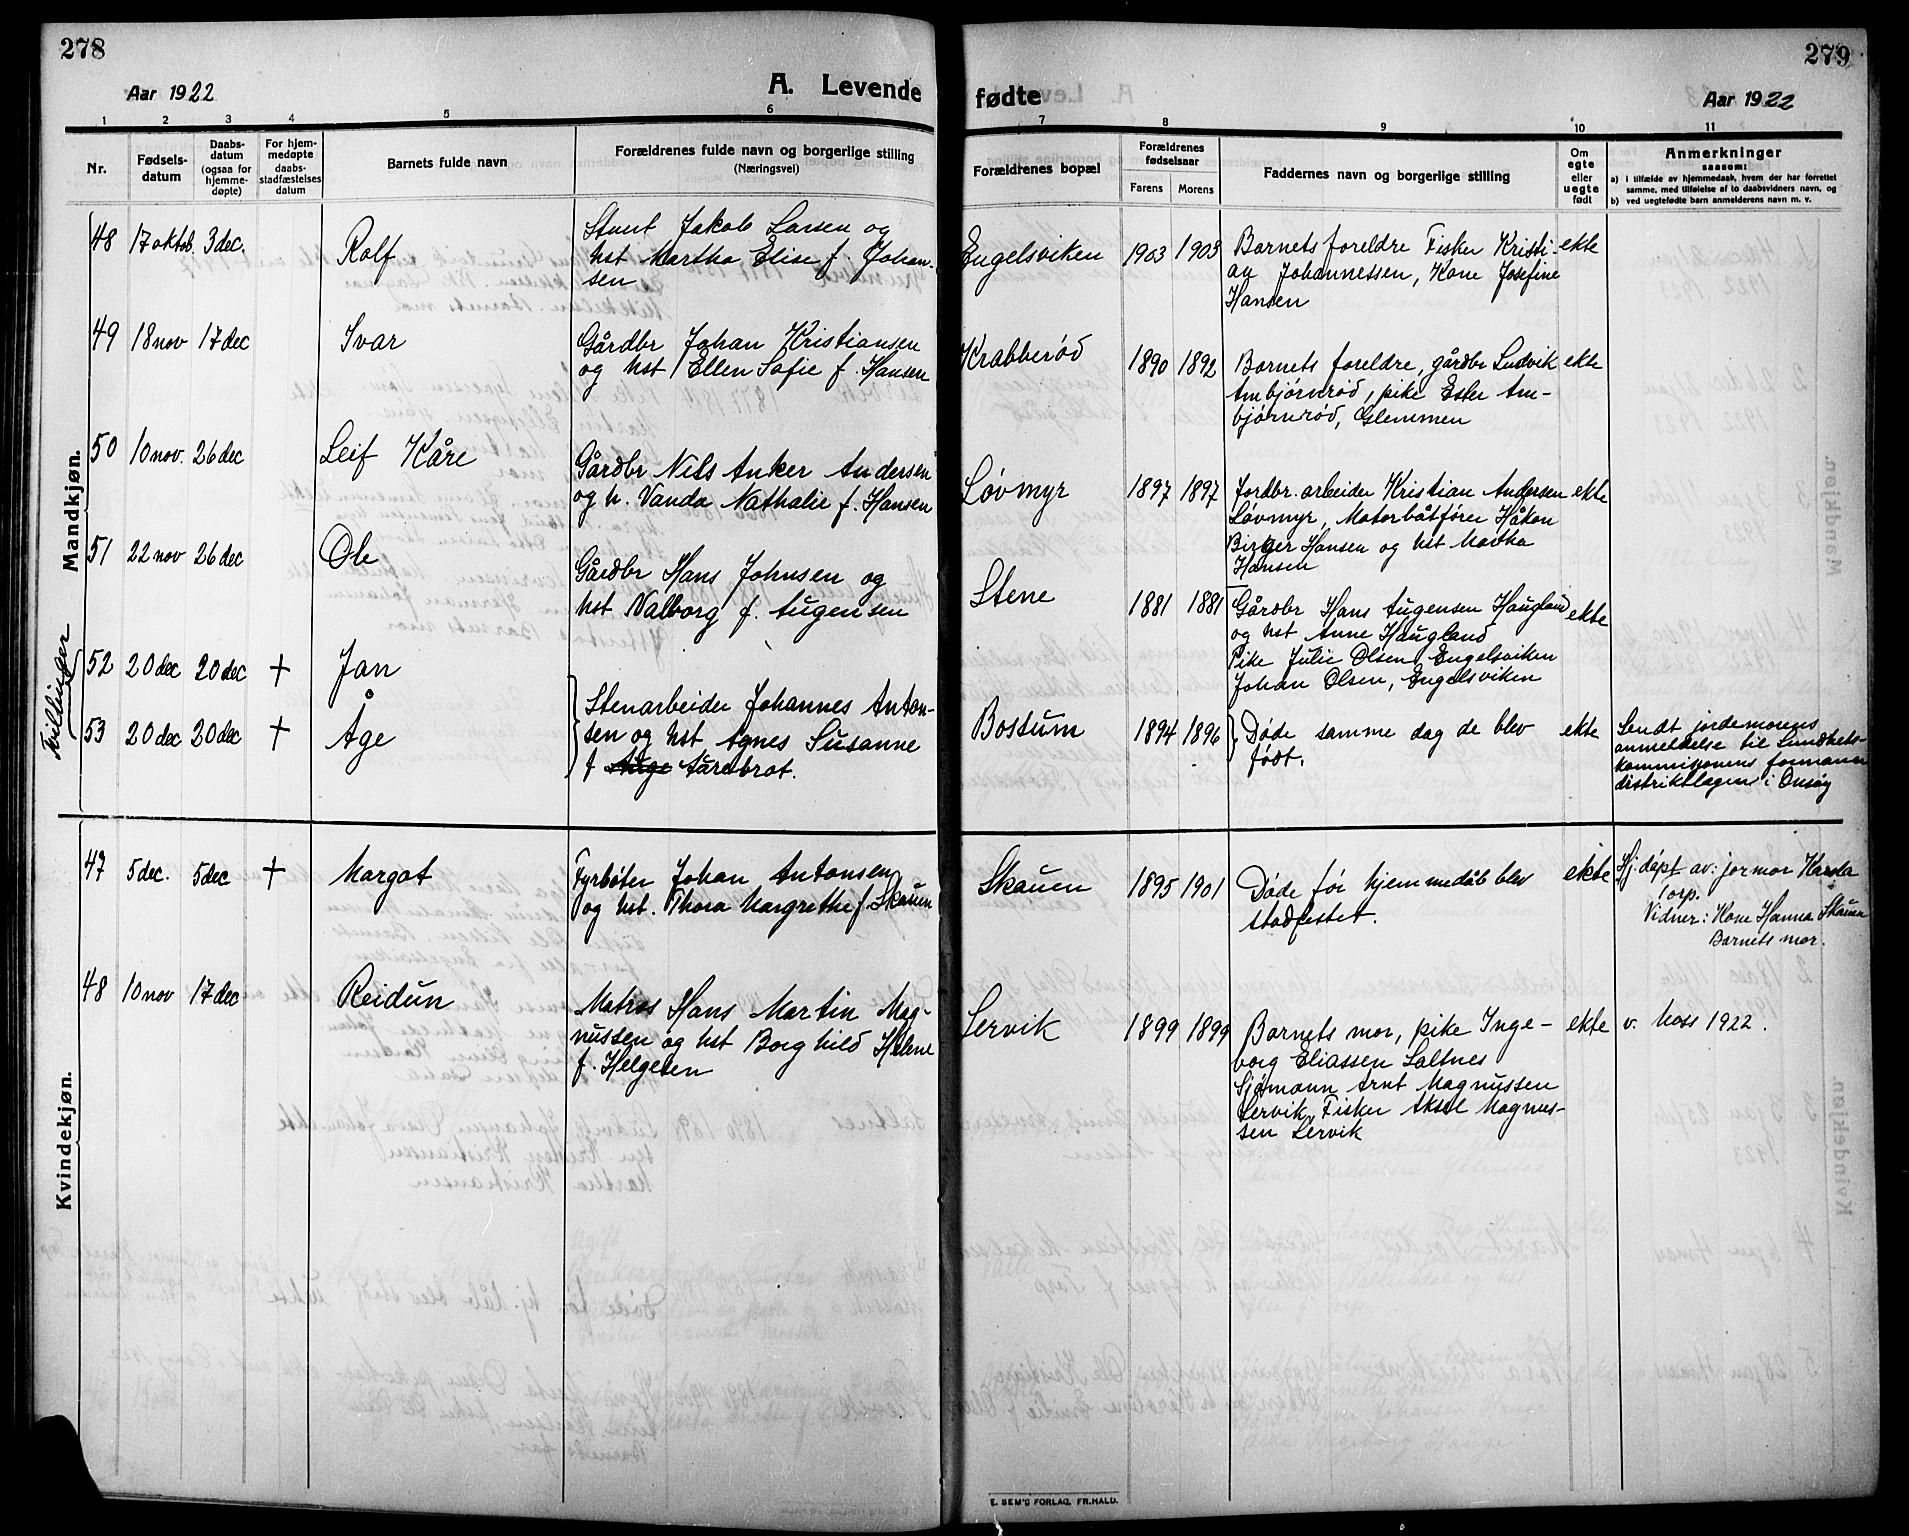 278
279
Aar 1922
A. Levende
fødte
Aar 1922
1 2 3 4 5 6 7 8 9 10 11
Nr.
Fødsels-
datum
Daabs-
datum
(ogsaa for
hjemme-
døpte)
For hjem-
medøpte
daabs-
stadfæstelses
datum
Barnets fulde navn
Forældrenes fulde navn og borgerlige stilling
(Næringsvei)
Forældrenes bopæl
Forældrenes
fødselsaar
Farens Morens
Faddernes navn og borgerlige stilling
Om
egte
eller
uegte
født
Anmerkninger
saasom:
a) i tilfælde av hjemmedaab, hvem der har forrettet
samme, med tilføielse af to daabsvidners navn, og
b) ved uegtefødte barn anmelderens navn m. v.
Mandkjøn.
48 17 oktob. 3 dec. Rolf
Stuut Jakob Larsen og
hst Martha Elise f. Johan-
sen
Engelsviken 1903 1903
Barnets foreldre Fisker Kristi-
an Johannessen, Kone Josefine
Hansen
ekte
49 18 nov 17 dec Ivar
Gårdbr Johan Kristiansen
og hst Ellen Sofie f. Hansen
Krabberød 1890 1892
Barnets foreldre, gårdbr Ludvik
Ambjørnrød, pike Ester Am-
bjørnrød, Glemmen
ekte
50 10 nov. 26 dec Leif Kåre
Gårdbr Nils Anker Andersen
og h. Vanda Nathalie f. Hansen
Løvmyr 1897 1897
Jordbr. arbeider Kristian Andersen
Løvmyr, Motorbåtfører Håkon
Birger Hansen og hst Martha
Hansen
ekte
51 22 nov 26 dec Ole
Gårdbr Hans Johnsen og
hst Valborg f. Augensen
Stene 1881 1881
Gårdbr Hans Augensen Haugland
og hst Anne Haugland
Pike Julie Olsen, Engelsviken
Johan Olsen, Engelsviken
ekte
Tvillinger
52 20 dec 20 dec + Jan
53 20 dec 20 dec + Åge
Stenarbeider Johannes Anton-
sen og hst Agnes Susanne
f Aurebrot.
Bossum 1894 1896
Døde samme dag de blev
født.
ekte
Sendt jordemorens
anmeldelse til Sundhets-
kommisjonens formann
distriktlægen i Onsøy
Kvindekjøn.
47 5 dec. 5 dec + Margot
Fyrbøter Johan Antonsen
og hst. Thora Margrethe f. Skauen
Skauen 1895 1901
Døde før hjemmedåb blev
stadfestet.
ekte
Hj. døpt av: jormor Karola
Torp.
Vidner: Kone Hanna Skauen
Barnets mor.
48 10 nov 17 dec Reidun
Matros Hans Martin Mag-
nussen og hst Borghild Helene
f. Helgesen
Lervik 1899 1899
Barnets mor, pike Inge-
borg Eliassen Saltnes
Sjømann Arnt Magnussen
Lervik, Fisker Aksel Magnus-
sen Lervik
ekte
v. Moss 1922.
E. SEM'S FORLAG, FR.HALD.